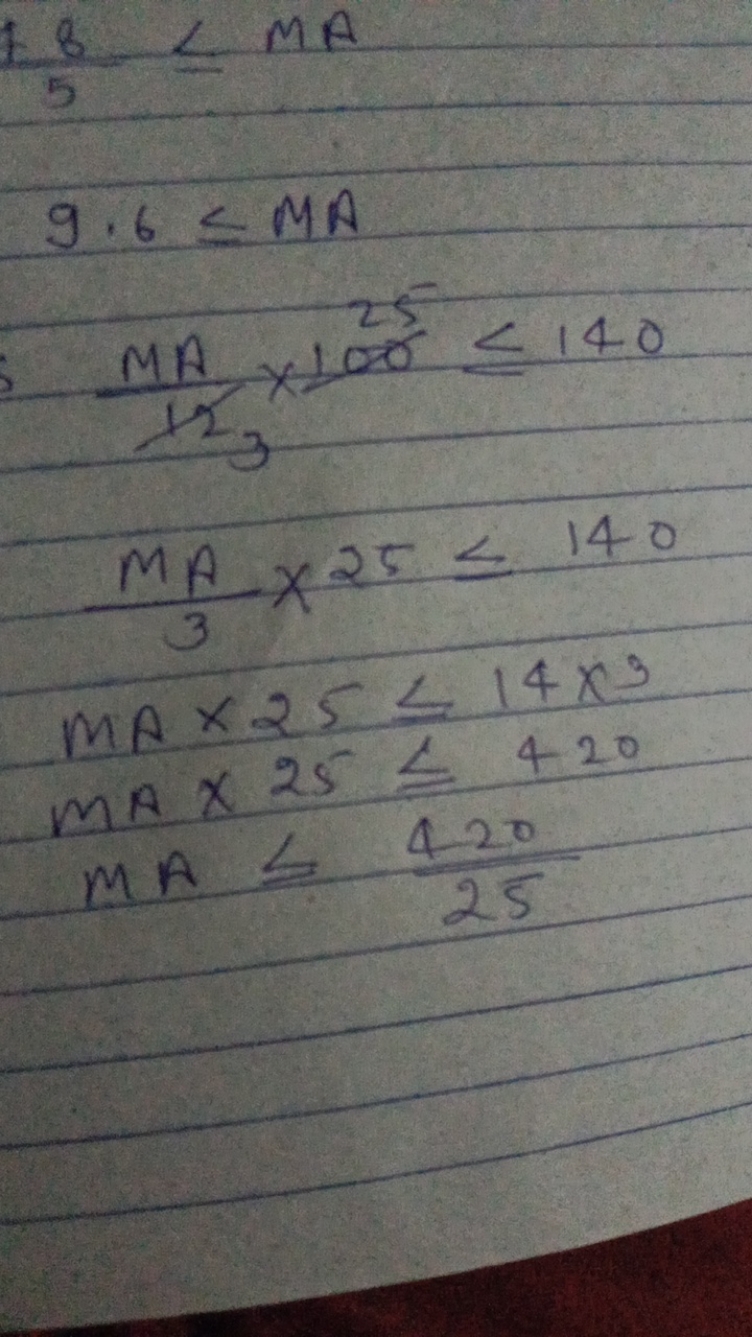 48/5 ≤ MA
9.6 ≤ MA
MA/12 3 × 100 25 ≤ 140
MA/3 × 25 ≤ 140
MA × 25 ≤ 14 × 3
MA × 25 ≤ 420
MA ≤ 420/25